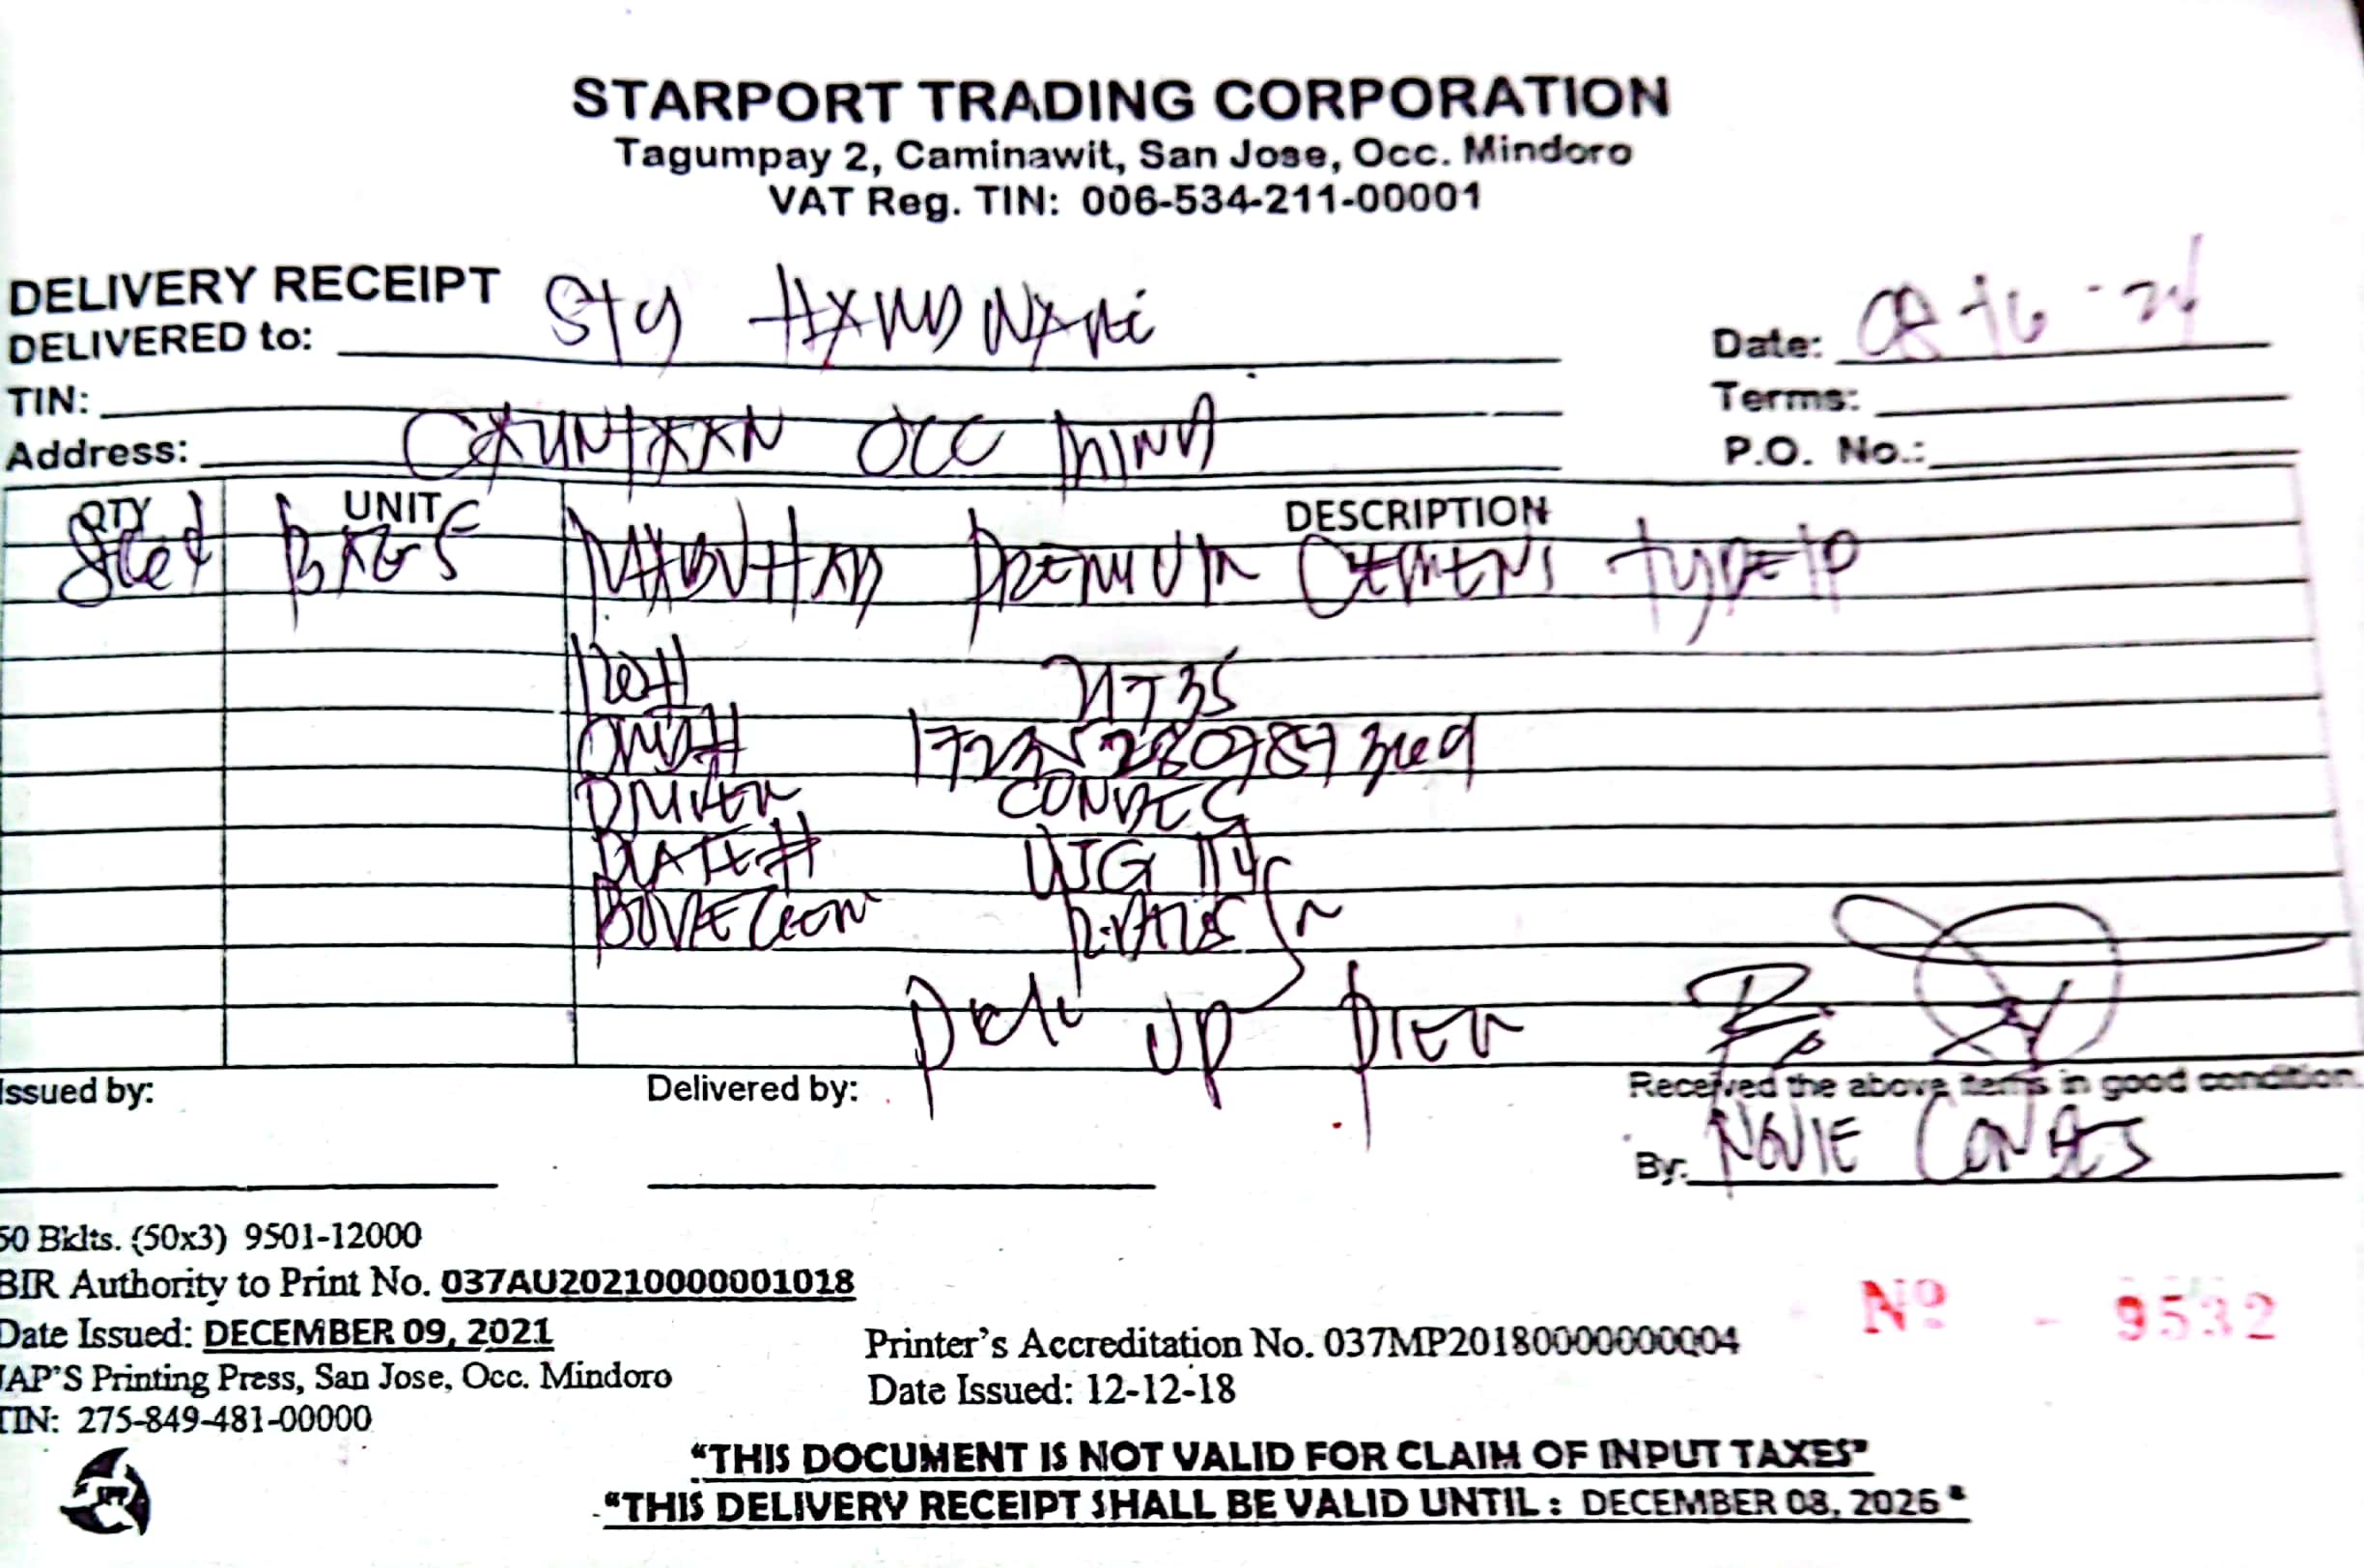 STARPORT TRADING CORPORATION
Tagumpay 2, Caminawit, San Jose, Occ. Mindoro
VAT Reg. TIN: 006-534-211-00001
DELIVERY RECEIPT
DELIVERED to: STY HARDWARE
Date: 08-16-24
TIN:
Terms:
Address: OCC MIND
P.O. No.:
QTY UNIT DESCRIPTION
BAGS PREMIUM CEMENT TYPE 1P
DRIVER CONDES
PLATE#
PICK UP PIER
Issued by:
Delivered by:
Received the above items in good condition.
By: NOVIE CONDES
50 Bklts. (50x3) 9501-12000
BIR Authority to Print No. 037AU20210000001018
Date Issued: DECEMBER 09, 2021
JAP'S Printing Press, San Jose, Occ. Mindoro
TIN: 275-849-481-00000
Printer's Accreditation No. 037MP20180000000004
Date Issued: 12-12-18
Nº - 9532
"THIS DOCUMENT IS NOT VALID FOR CLAIM OF INPUT TAXES"
"THIS DELIVERY RECEIPT SHALL BE VALID UNTIL : DECEMBER 08, 2026"